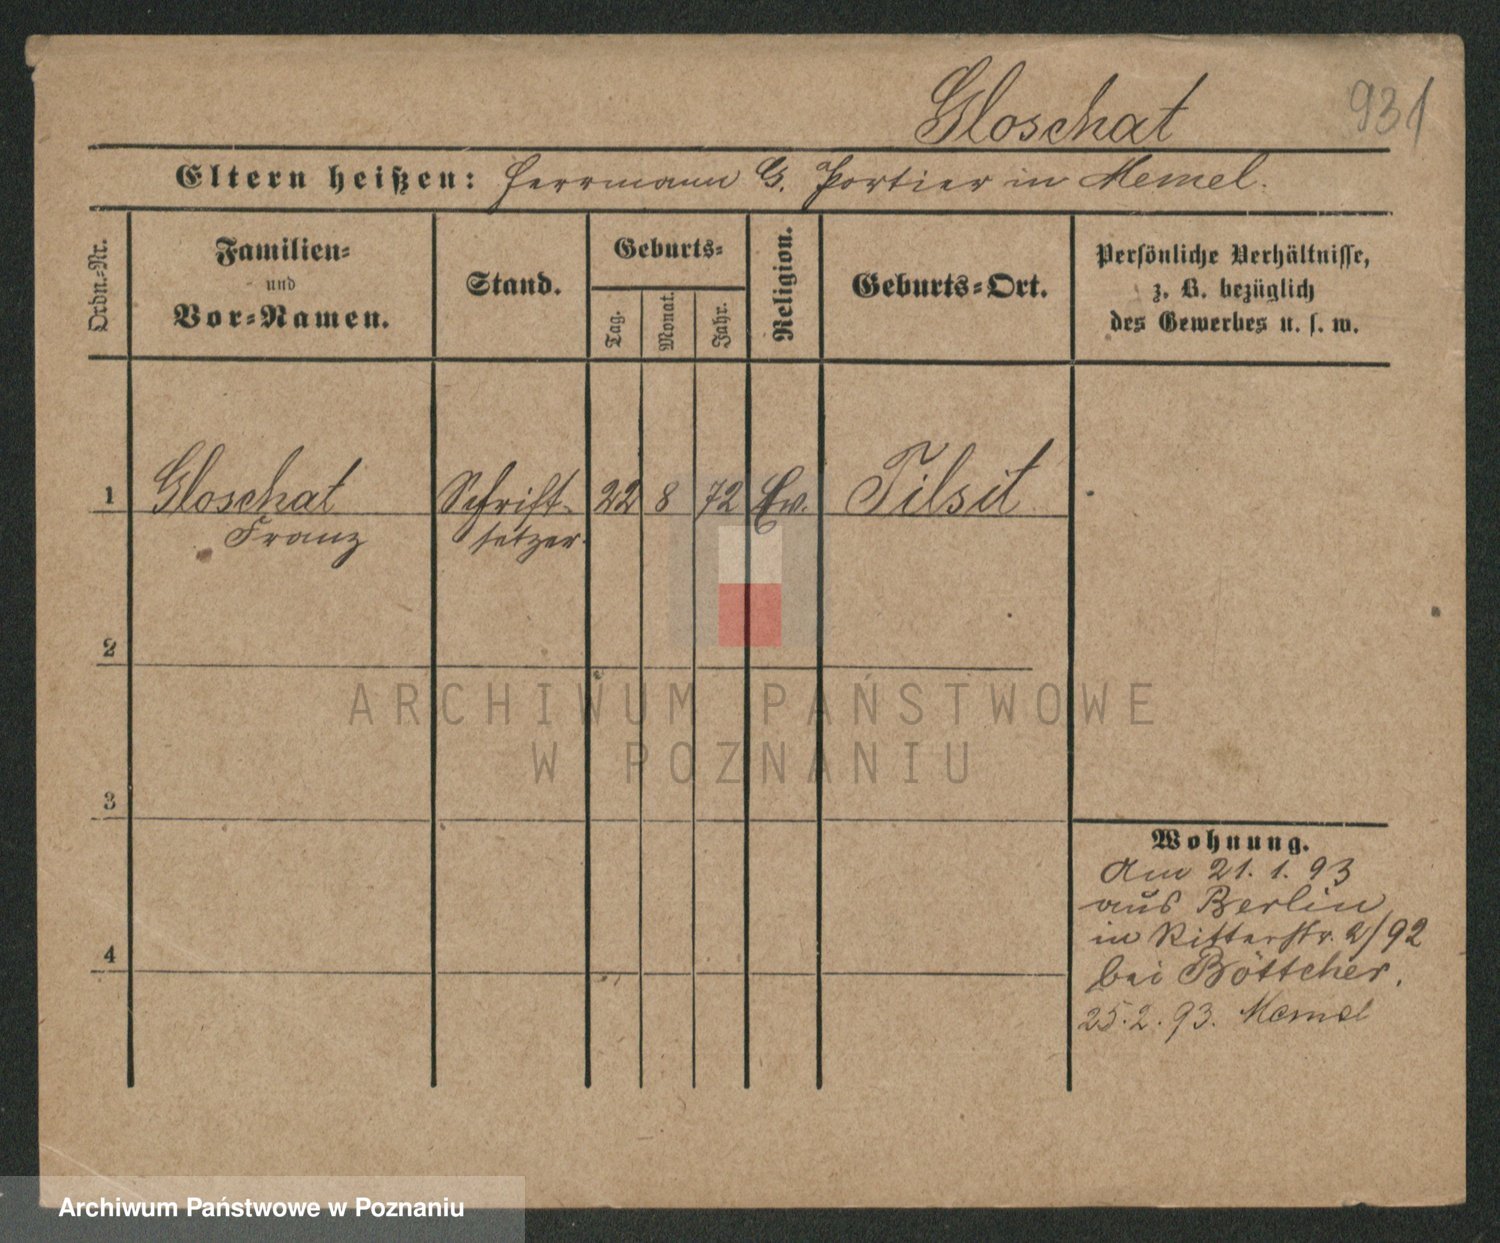 Gloschat
931
Eltern heißen: Herrmann G. Portier in Memel.
Ordn.-Nr.
Familien-
und
Vor-Namen.
Stand.
Geburts-
Tag.
Monat.
Jahr.
Religion.
Geburts-Ort.
Persönliche Verhältnisse,
z. B. bezüglich
des Gewerbes u. s. w.
1 Gloschat Schrift- 22 8 72 Ev. Tilsit
Franz setzer.
2
3
4
Wohnung.
Am 21. 1. 93
aus Berlin
in Ritterstr. 2/92
bei Böttcher.
25. 2. 93. Memel
ARCHIWUM PAŃSTWOWE
W POZNANIU
Archiwum Państwowe w Poznaniu